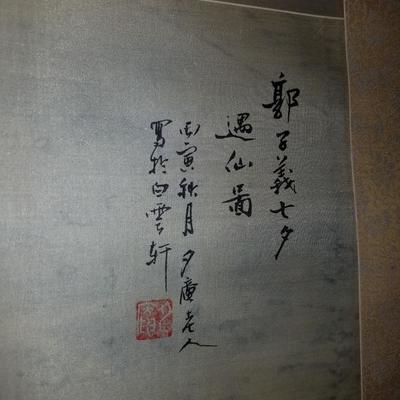 郭子義七夕
遇仙圖
丙寅秋月夕廣老人
寫於白雲軒